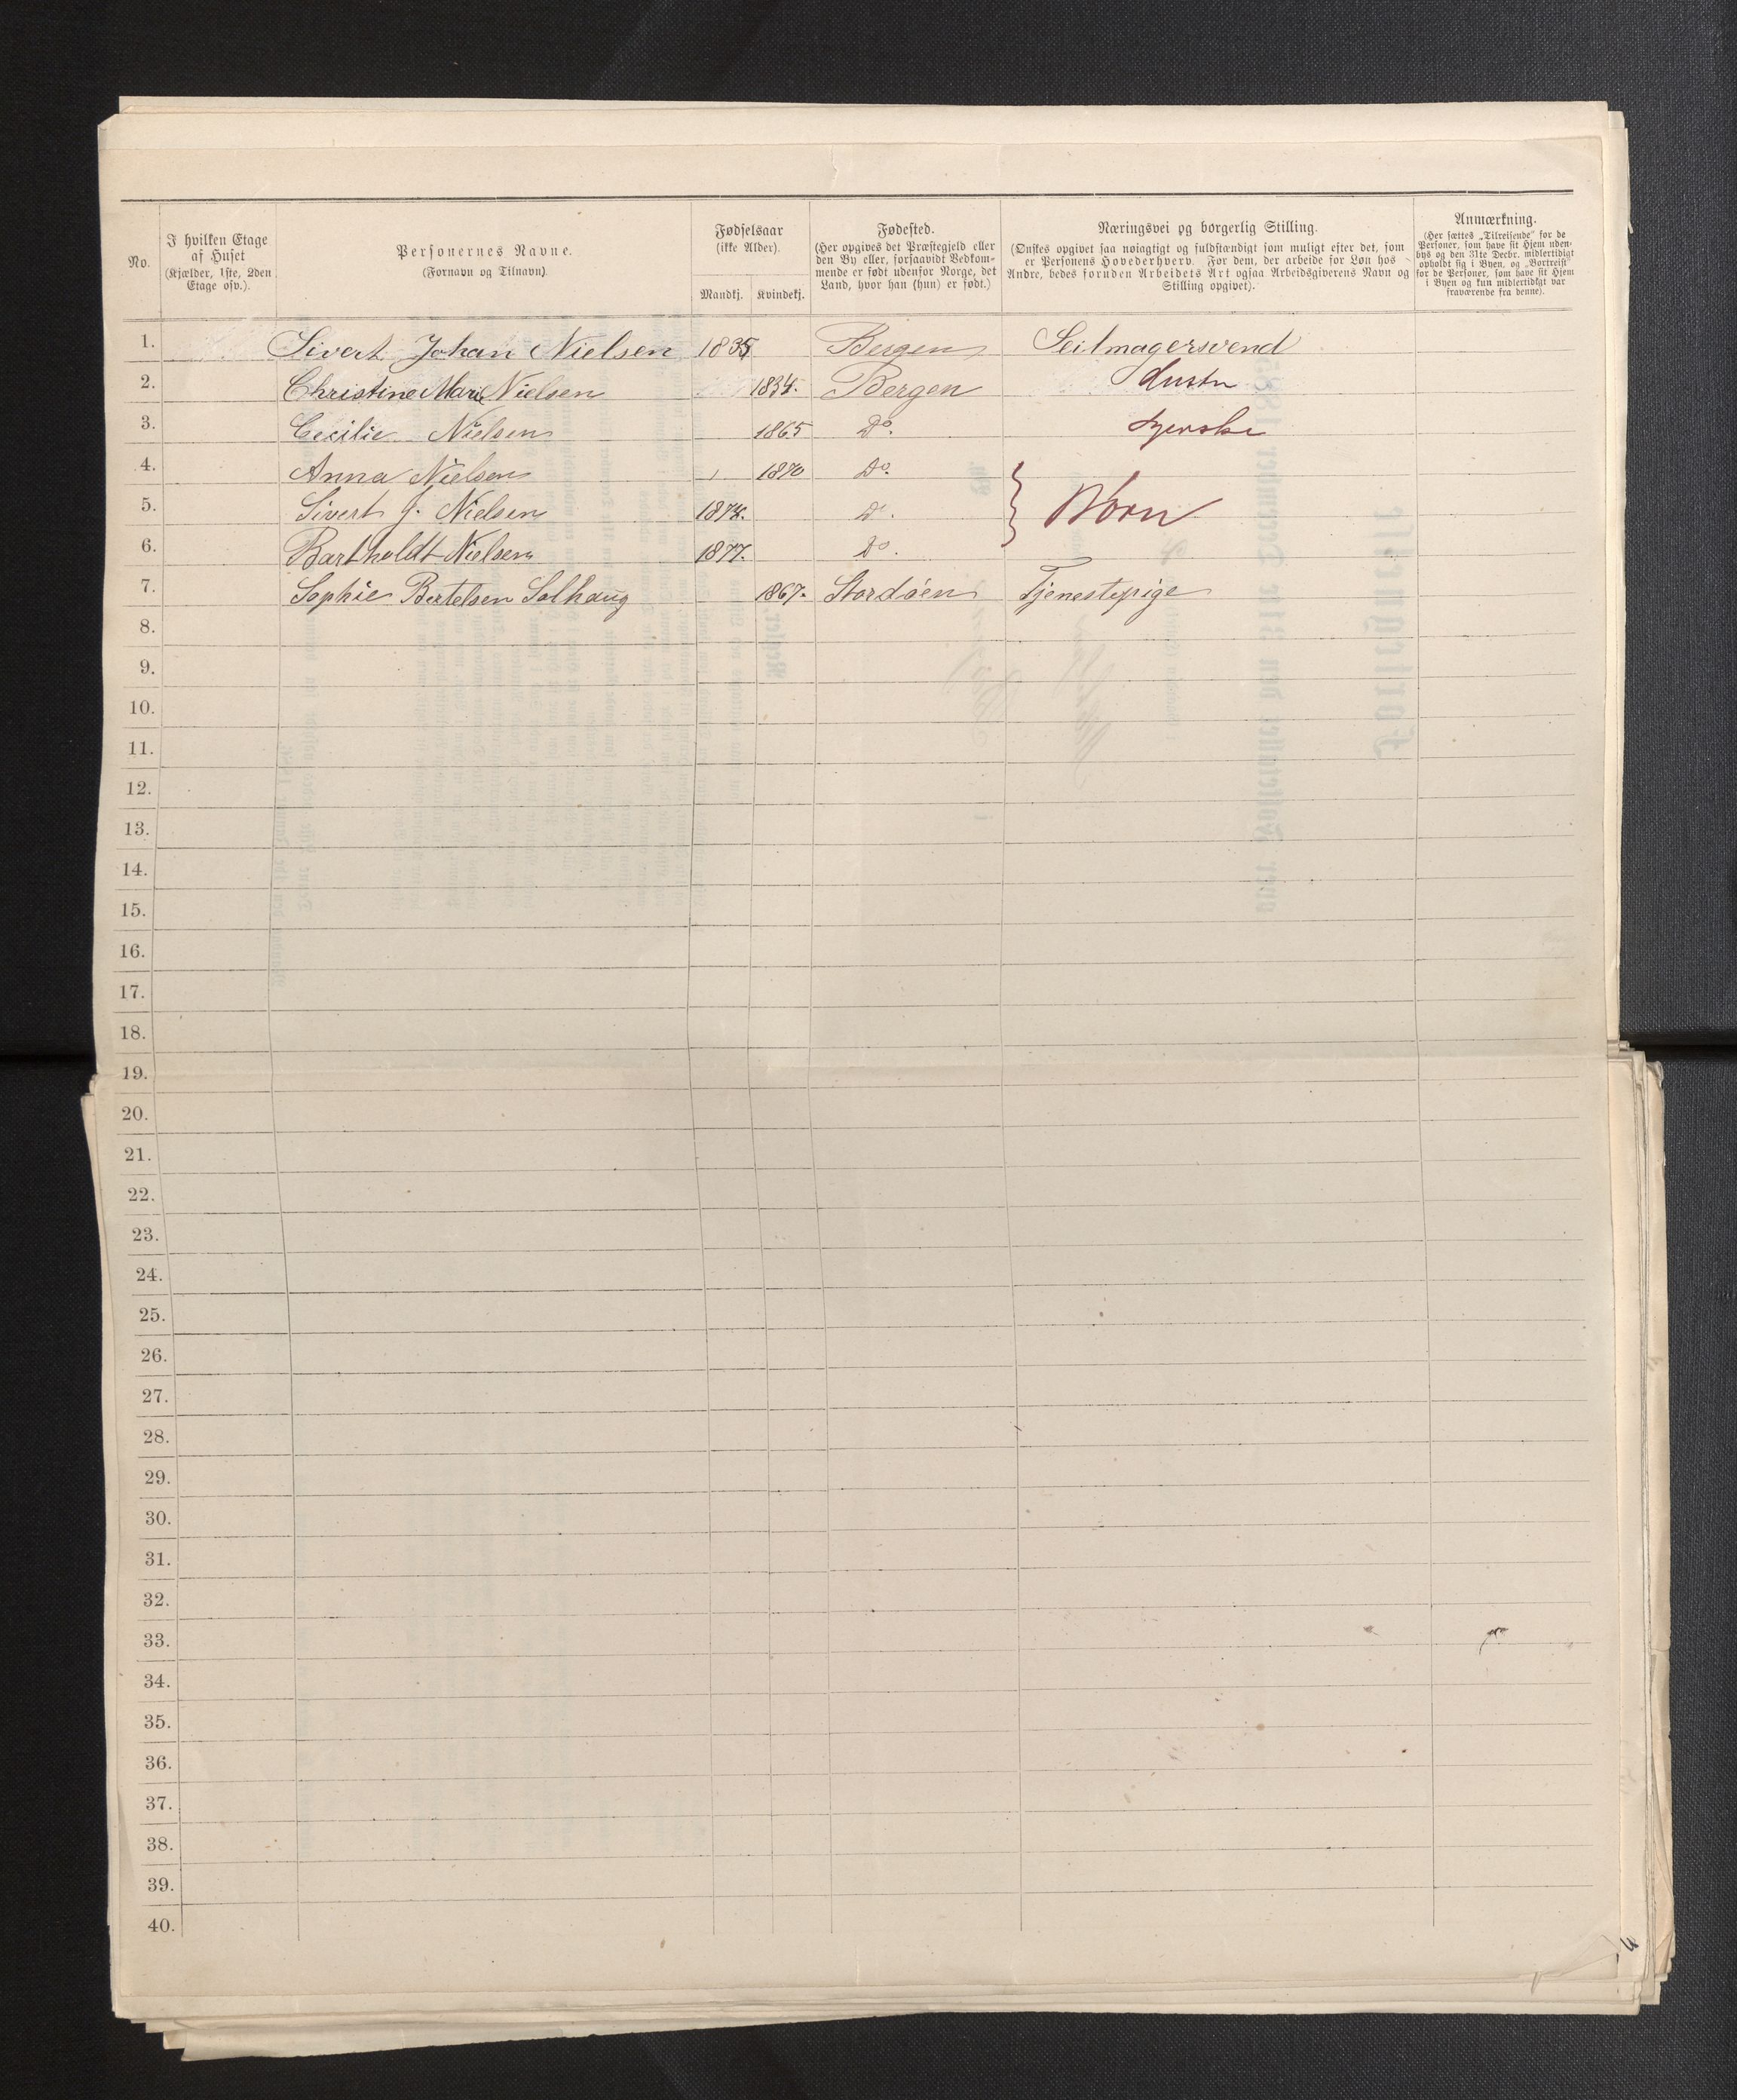 No.
I hvilken Etage
af Huset
(Kjælder, 1ste, 2den
Etage osv.).
Personernes Navne.
(Fornavn og Tilnavn).
Fødselsaar
(ikke Alder).
Mandkj. Kvindekj.
Fødested.
(Her opgives det Præstegjeld eller
den By eller, forsaavidt Vedkom-
mende er født udenfor Norge, det
Land, hvor han (hun) er født.)
Næringsvei og borgerlig Stilling.
(Ønskes opgivet saa nøiagtigt og fuldstændigt som muligt efter det, som
er Personens Hovederhverv. For dem, der arbeide for Løn hos
Andre, bedes foruden Arbeidets Art ogsaa Arbeidsgiverens Navn og
Stilling opgivet).
Anmærkning.
(Her sættes „Tilreisende" for de
Personer, som have sit Hjem uden-
bys og den 31te Decbr. midlertidigt
opholdt sig i Byen, og „Bortreist"
for de Personer, som have sit Hjem
i Byen og kun midlertidigt var
fraværende fra denne).
1. Sivert Johan Nielsen 1835 Bergen Seilmagersvend
2. Christine Marie Nielsen 1834. Bergen Hustru
3. Cecilie Nielsen 1865 Do. Syerske
4. Anna Nielsen 1870 Do.
5. Sivert J. Nielsen 1874. Do. } Børn
6. Bartholdt Nielsen 1877. Do.
7. Sophie Bertelsen Solhaug 1867. Stordøen Tjenestepige
8.
9.
10.
11.
12.
13.
14.
15.
16.
17.
18.
19.
20.
21.
22.
23.
24.
25.
26.
27.
28.
29.
30.
31.
32.
33.
34.
35.
36.
37.
38.
39.
40.